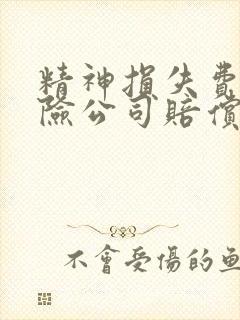 精神損失費
險公司賠償
不會受傷的魚